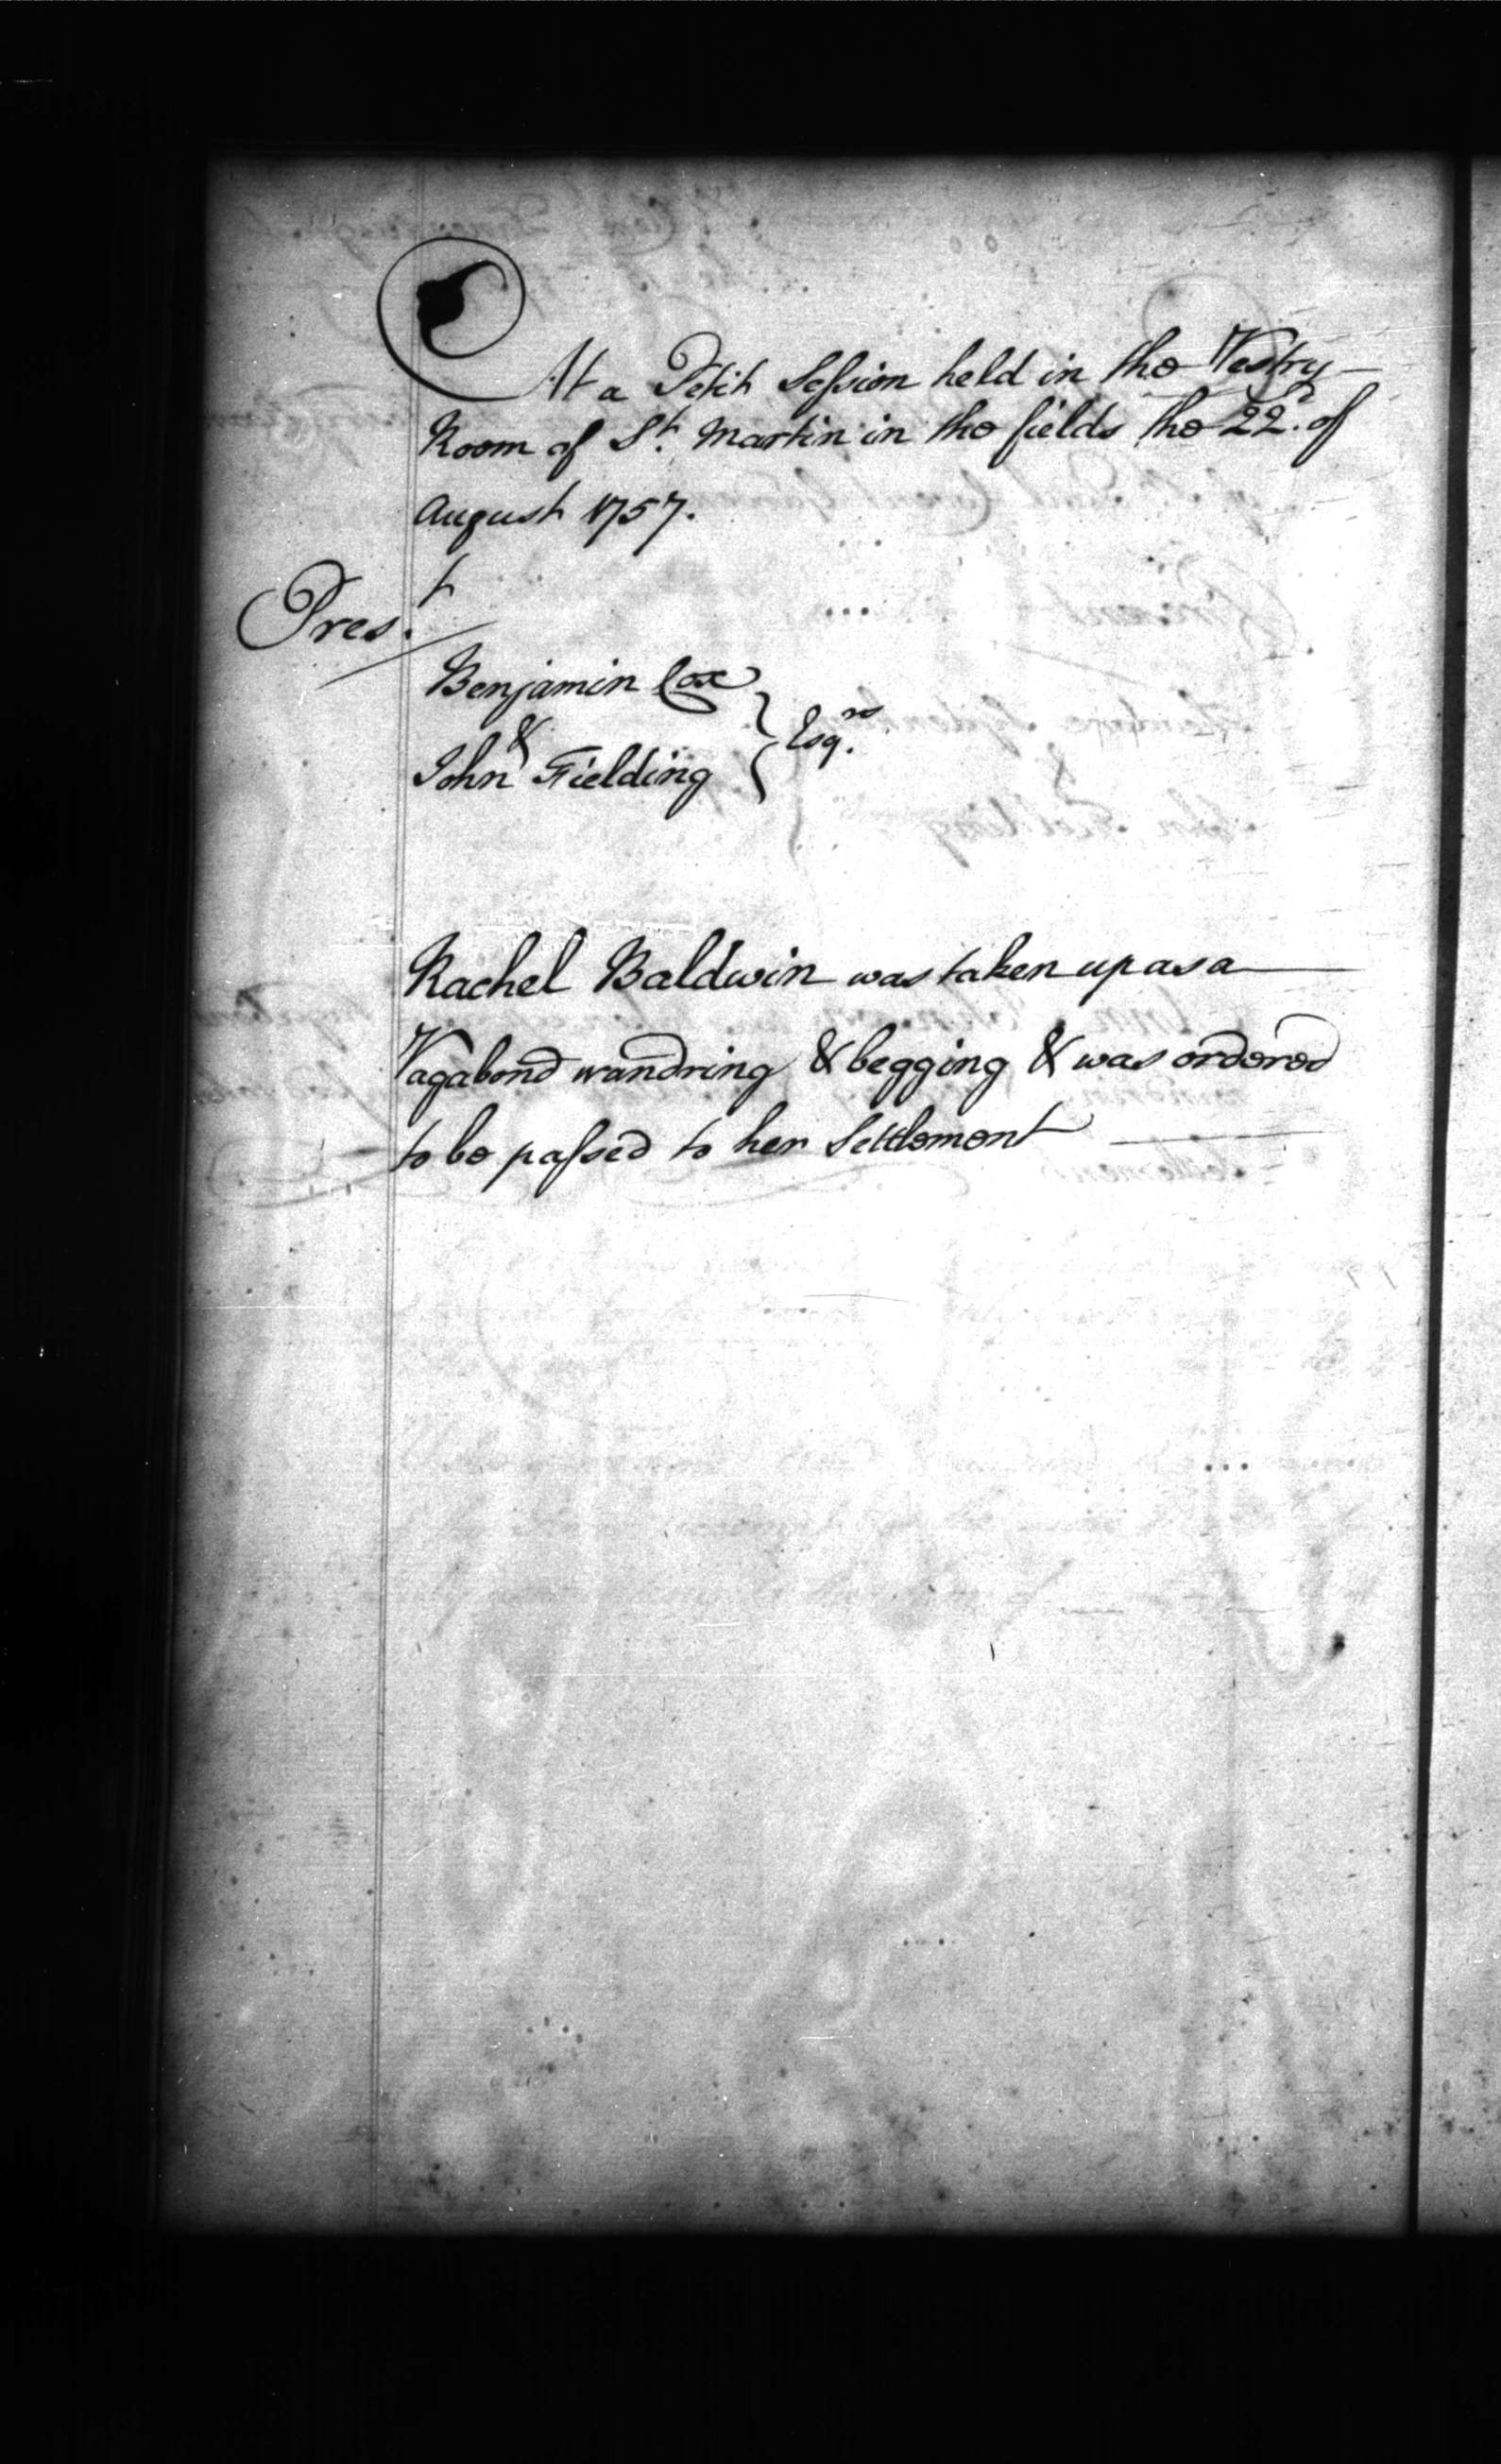 At a Petit Session held in the Vestry
Room of St. Martin in the fields the 22d. of
August 1757.
Prest.
Benjamin Cox
&
John Fielding } Esqrs.
Rachel Baldwin was taken up as a
Vagabond wandring & begging & was ordered
to be passed to her Settlement